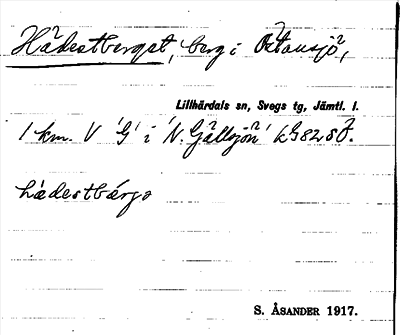 Hådestberget, berg i Östansjö,
Lillhärdals sn, Svegs tg, Jämtl. l.
1 km. V 'G' i 'N. Gällsjön' kG82sÖ.
hàdestbárjo
S. ÅSANDER 1917.